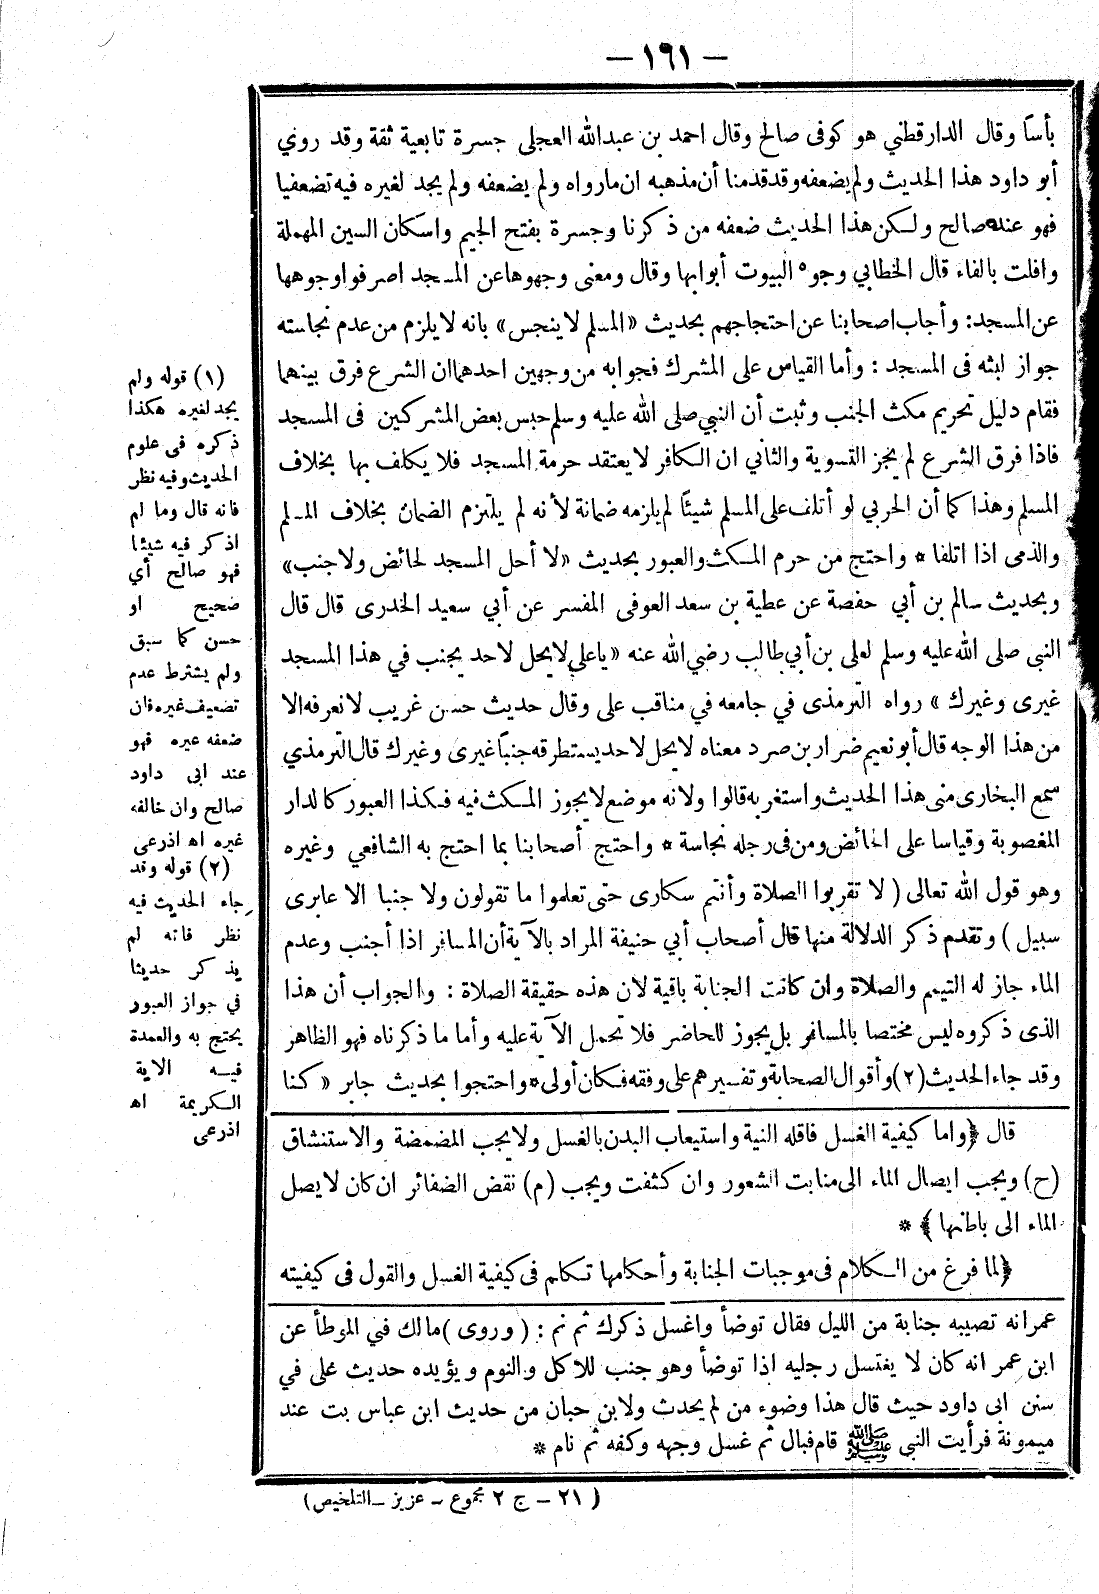 — ١٦١ —
بأسًا وقال الدارقطني هو كوفى صالح وقال احمد بن عبدالله العجلى جسرة تابعية ثقة وقد روي
أبو داود هذا الحديث ولم يضعفه وقد قدمنا أن مذهبه ان مارواه ولم يضعفه ولم يجد لغيره فيه تضعفيا
فهو عنده صالح ولكن هذا الحديث ضعفه من ذكرنا وجسرة بفتح الجيم واسكان السين المهملة
وافلت بالفاء قال الخطابي وجوه البيوت أبوابها وقال ومعنى وجهوها عن المسجد اصرفوا وجوهها
عن المسجد: وأجاب اصحابنا عن احتجاجهم بحديث «المسلم لا ينجس» بانه لا يلزم من عدم نجاسته
جواز لبثه فى المسجد : وأما القياس على المشرك فجوابه من وجهين احدهما ان الشرع فرق بينهما
فقام دليل تحريم مكث الجنب وثبت أن النبي صلى الله عليه وسلم حبس بعض المشركين فى المسجد
فاذا فرق الشرع لم يجز التسوية والثاني ان الكافر لا يعتقد حرمة المسجد فلا يكلف بها بخلاف
المسلم وهذا كما أن الحربي لو أتلف على المسلم شيئًا لم يلزمه ضمانة لأنه لم يلتزم الضمان بخلاف المسلم
والذمى اذا اتلفا * واحتج من حرم المكث والعبور بحديث «لا أحل المسجد لحائض ولا جنب»
وبحديث سالم بن أبي حفصة عن عطية بن سعد العوفى المفسر عن أبي سعيد الخدرى قال قال
النبى صلى الله عليه وسلم لعلى بن أبي طالب رضي الله عنه «ياعلي لا يحل لاحد يجنب في هذا المسجد
غيرى وغيرك » رواه الترمذى في جامعه في مناقب على وقال حديث حسن غريب لا نعرفه الا
من هذا الوجه قال أبو نعيم ضرار بن صرد معناه لا يحل لاحد يستطرقه جنبًا غيرى وغيرك قال الترمذي
سمع البخارى منى هذا الحديث واستغربه قالوا ولانه موضع لا يجوز المكث فيه فكذا العبور كالدار
المغصوبة وقياسا على الحائض ومن فى رجله نجاسة * واحتج أصحابنا بما احتج به الشافعي وغيره
وهو قول الله تعالى ( لا تقربوا الصلاة وأنتم سكارى حتى تعلموا ما تقولون ولا جنبا الا عابرى
سبيل ) وتقدم ذكر الدلالة منها قال أصحاب أبي حنيفة المراد بالآية أن المسافر اذا أجنب وعدم
الماء جاز له التيمم والصلاة وان كانت الجنابة باقية لان هذه حقيقة الصلاة : والجواب أن هذا
الذى ذكروه ليس مختصا بالمسافر بل يجوز للحاضر فلا تحمل الآية عليه وأما ما ذكرناه فهو الظاهر
وقد جاء الحديث (٢) وأقوال الصحابة وتفسيرهم على وفقه فكان أولى * واحتجوا بحديث جابر « كنا
(١) قوله ولم
يجد لغيره هكذا
ذكره فى علوم
الحديث وفيه نظر
فانه قال وما لم
اذكر فيه شيئا
فهو صالح أي
صحيح او
حسن كما سبق
ولم يشترط عدم
تضعيف غيره فان
ضعفه غيره فهو
عند ابى داود
صالح وان خالفه
غيره اه اذرعى
(٢) قوله وقد
جاء الحديث فيه
نظر فانه لم
يذكر حديثا
في جواز العبور
يحتج به والعمدة
فيه الاية
الكريمة اه
اذرعى
قال ﴿واما كيفية الغسل فاقله النية واستيعاب البدن بالغسل ولا يجب المضمضة والاستنشاق
(ح) ويجب ايصال الماء الى منابت الشعور وان كثفت ويجب (م) نقض الضفائر ان كان لا يصل
الماء الى باطنها ﴾ *
﴿لما فرغ من الكلام فى موجبات الجنابة وأحكامها تكلم فى كيفية الغسل والقول فى كيفيته
عمر انه تصيبه جنابة من الليل فقال توضأ واغسل ذكرك ثم نم : ( وروى ) مالك في الموطأ عن
ابن عمر انه كان لا يغتسل رجليه اذا توضأ وهو جنب للاكل والنوم ويؤيده حديث على في
سنن ابى داود حيث قال هذا وضوء من لم يحدث ولابن حبان من حديث ابن عباس بت عند
ميمونة فرأيت النبي ﷺ قام فبال ثم غسل وجهه وكفه ثم نام *
( ٢١ – ج ٢ مجموع – عزيز – التلخيص)